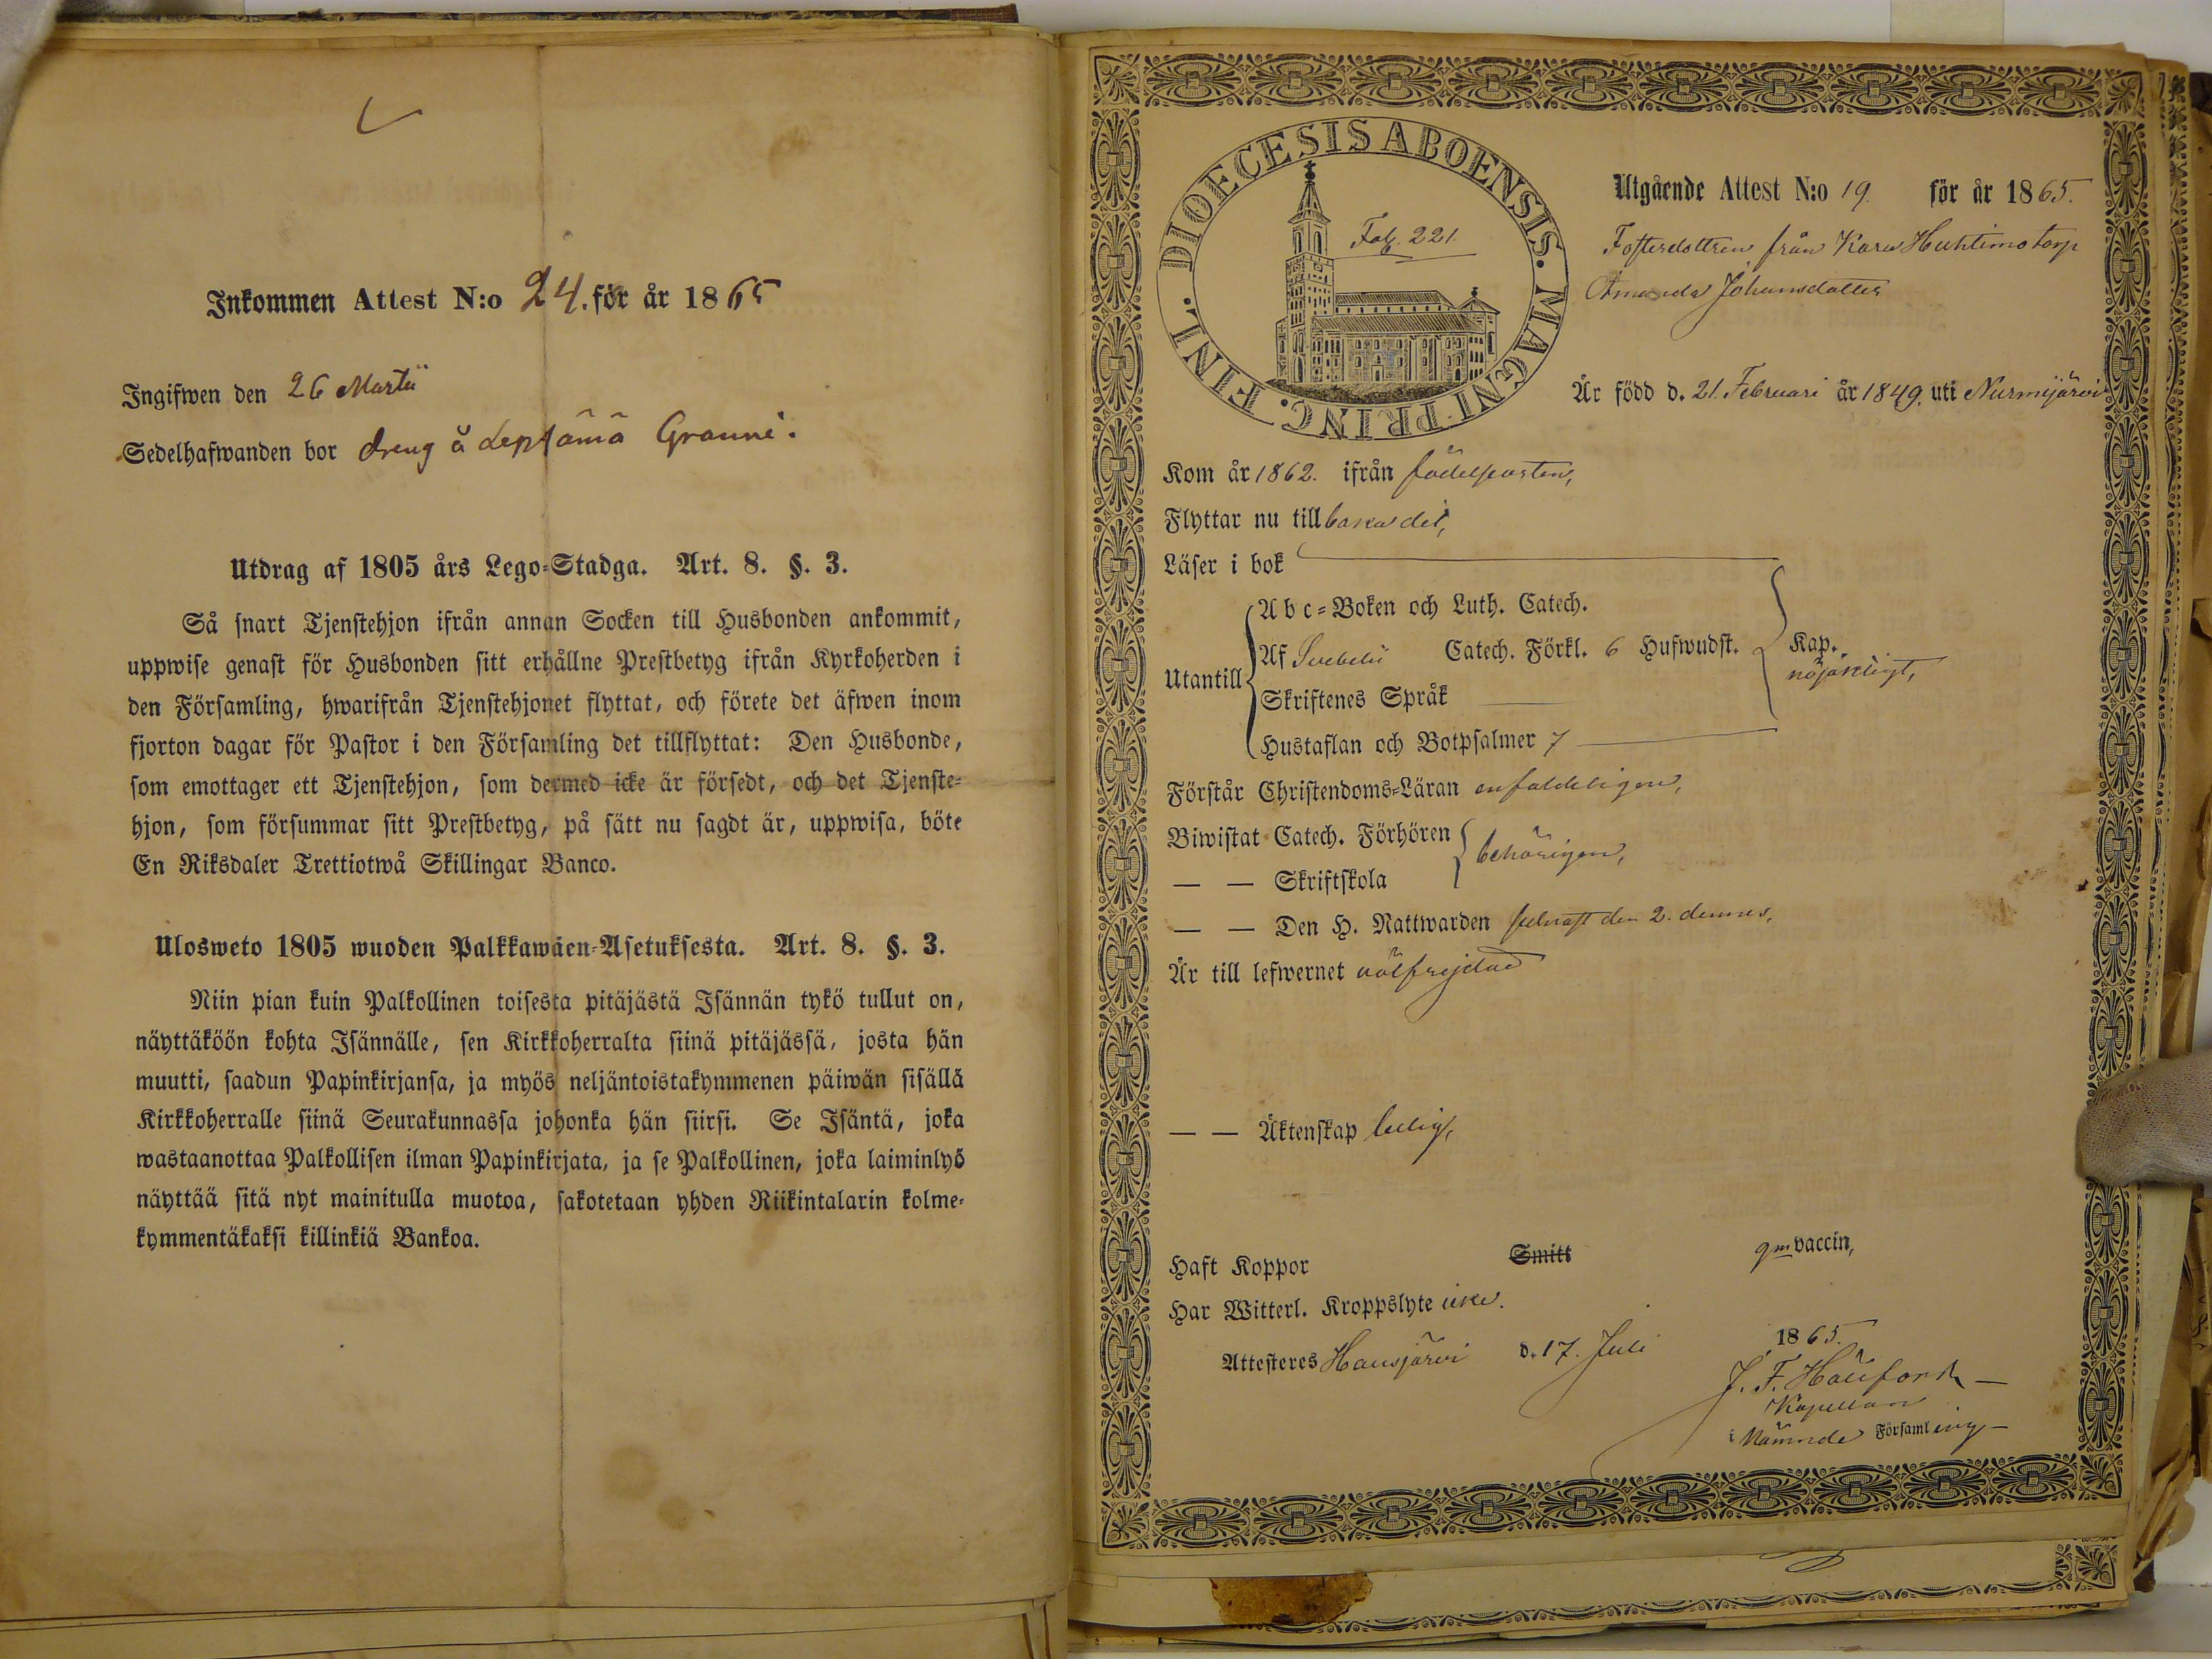 Inkommen Attest N:o 24. för år 1865
Ingifwen den 26 Martii
Sedelhafwanden bor dreng å Lepsämä Granni.
Utdrag af 1805 års Lego-Stadga. Art. 8. §. 3.
Så snart Tjenstehjon ifrån annan Socken till Husbonden ankommit,
uppwise genast för Husbonden sitt erhållne Prestbetyg ifrån Kyrkoherden i
den Församling, hwarifrån Tjenstehjonet flyttat, och förete det äfwen inom
fjorton dagar för Pastor i den Församling det tillflyttat: Den Husbonde,
som emottager ett Tjenstehjon, som dermed icke är försedt, och det Tjenste-
hjon, som försummar sitt Prestbetyg, på sätt nu sagdt är, uppwisa, böte
En Riksdaler Trettiotwå Skillingar Banco.
Ulosweto 1805 wuoden Palkkawäen-Asetuksesta. Art. 8. §. 3.
Niin pian kuin Palkollinen toisesta pitäjästä Isännän tykö tullut on,
näyttäköön kohta Isännälle, sen Kirkkoherralta siinä pitäjässä, josta hän
muutti, saadun Papinkirjansa, ja myös neljäntoistakymmenen päiwän sisällä
Kirkkoherralle siinä Seurakunnassa johonka hän siirsi. Se Isäntä, joka
wastaanottaa Palkollisen ilman Papinkirjata, ja se Palkollinen, joka laiminlyö
näyttää sitä nyt mainitulla muotoa, sakotetaan yhden Riikintalarin kolme-
kymmentäkaksi killinkiä Bankoa.
DIOECESIS ABOENSIS. MAGNI PRINC. FINL.
Fol. 221.
Utgående Attest N:o 19. för år 1865.
Fosterdottren från Kara Huhtimo torp
Amanda Johansdotter
Är född d. 21. Februari år 1849. uti Nurmijärvi
Kom år 1862. ifrån födelseorten,
Flyttar nu till baka dit,
Läser i bok
Utantill
Abc-Boken och Luth. Catech.
Af Svebelii Catech. Förkl. 6 Hufwudst.
Kap.
nöjaktigt,
Skriftenes Språk
Hustaflan och Botpsalmer 7
Förstår Christendoms-Läran enfaldeligen,
Biwistat Catech. Förhören
behörigen,
— — Skriftskola
— — Den H. Nattwarden sednast den 2. dennes,
Är till lefwernet välfrejdad
— — Äktenskap ledig,
Haft Koppor Smitt gm vaccin,
Har Witterl. Kroppslyte icke.
Attesteres Hausjärvi d. 17. Juli 1865.
J. F.
Kapellan
i Nämnde Församling